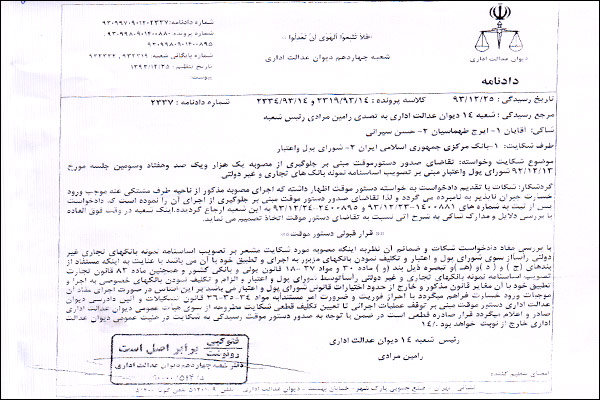 «فلا تتبعوا الهوی ان تعدلوا»
شعبه چهاردهم دیوان عدالت اداری
دیوان عدالت اداری
شماره دادنامه: ۹۳۰۹۹۷۰۹۰۱۴۰۲۳۳۷
شماره پرونده: ۹۳۰۹۹۸۰۹۰۱۴۰۰۸۸۰
۹۳۰۹۹۸۰۹۰۱۴۰۰۸۹۵
شماره بایگانی شعبه:
تاریخ تنظیم: ۱۳۹۳/۱۲/۲۵
پیوست:
دادنامه
تاریخ رسیدگی: ۹۳/۱۲/۲۵ کلاسه پرونده: ۲۳۱۹/۹۳/۱۴ و ۲۳۳۴/۹۳/۱۴ شماره دادنامه: ۲۳۳۷
مرجع رسیدگی: شعبه ۱۴ دیوان عدالت اداری به تصدی رامین مرادی رئیس شعبه
شاکی: آقایان ۱- ایرج طهماسبیان ۲- حسن سیرانی
طرف شکایت: ۱-بانک مرکزی جمهوری اسلامی ایران ۲-شورای پول واعتبار
موضوع شکایت وخواسته: تقاضای صدور دستورموقت مبنی بر جلوگیری از مصوبه یک هزار ویک صد وهفتاد وسومین جلسه مورخ
۹۲/۱۲/۱۳ شورای پول و اعتبار مبنی بر تصویب اساسنامه نمونه بانک های تجاری و غیر دولتی
گردشکار: شکات با تقدیم دادخواست به خواسته دستور موقت اظهار داشته که اجرای مصوبه مذکور از ناحیه طرف مشتکی عنه موجب ورود
خسارت جبران ناپذیر به نامبرده می گردد و لذا تقاضای صدور دستور موقت مبنی بر جلوگیری از اجرای آن را نموده است که دادخواست
پس از ثبت به شماره های به این شعبه ارجاع گردیده، اینک شعبه در وقت فوق العاده
با بررسی دلایل و مدارک شاکی به شرح آتی نسبت به تقاضای دستور موقت اتخاذ تصمیم می نماید.
«قرار قبولی دستور موقت»
با بررسی مفاد دادخواست شکات و ضمائم آن نظربه اینکه مصوبه مورد شکایت مشعر بر تصویب اساسنامه نمونه بانکهای تجاری غیر
دولتی راساً از سوی شورای پول و اعتبار و تکلیف نمودن بانکهای مزبور به اجرای و تطبیق خود با آن می باشد با عنایت به اینکه مستفاد از
بندهای (ج) و (د) و (هـ) و تبصره ذیل بند (و) ماده ۳۰ و مواد ۳۷-۱۸۰ قانون پولی و بانکی کشور و همچنین ماده ۸۳ قانون تجارت
تصویب اساسنامه نمونه بانکهای تجاری و غیر دولتی راسا توسط شورای پول و اعتبار و الزام و تکلیف نمودن بانکهای خصوصی به اجرا و
تطبیق خود با آن مغایر قانون مذکور و خارج از حدود اختیارات قانونی شورای پول و اعتبار می باشد براین اساس در صورت اجرای مفاد آن
موجبات ورود خسارت فراهم میگردد با احراز فوریت و ضرورت امر مستندا به مواد ۳۴-۳۵-۳۶ قانون تشکیلات و آئین دادرسی دیوان
عدالت اداری دستور موقت مبنی بر توقف عملیات اجرائی تا تعیین تکلیف قطعی شکایت مطروحه از سوی هیات عمومی دیوان عدالت اداری
صادر و اعلام میگردد قرار صادره قطعی است در ضمن با توجه به صدور دستور موقت رسیدگی به شکایت در هیئت عمومی دیوان عدالت
اداری خارج از نوبت خواهد بود./۱۴
رئیس شعبه ۱۴ دیوان عدالت اداری
رامین مرادی
فتوکپی
رونوشت
برابر اصل است
دفتر شعبه چهاردهم دیوان عدالت اداری
امضای تنظیم کننده: